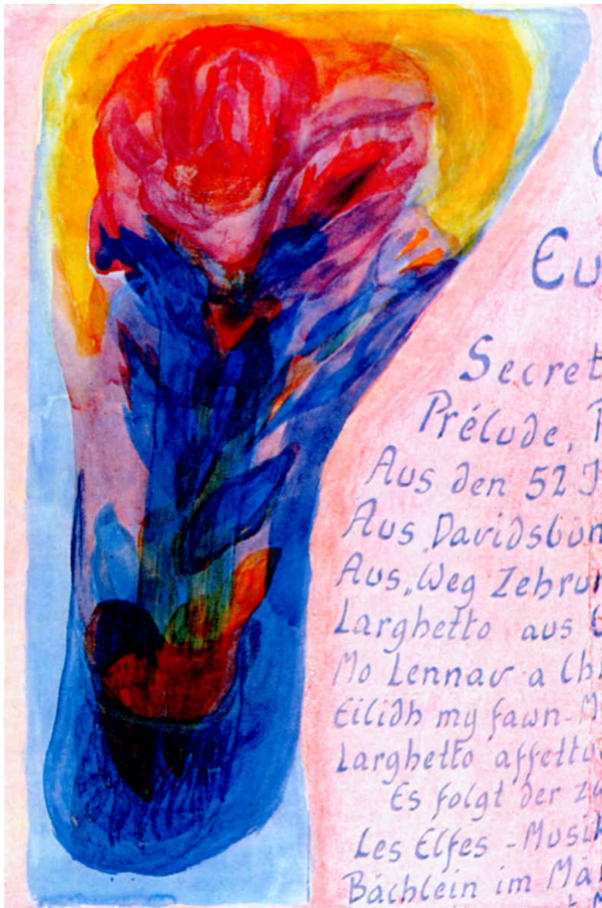 Eu
Secret
Prélude,
Aus den 52
Aus „Davidsbün
Aus „Weg Zehrun
Larghetto aus
Mo Lennav a Ch
Eilidh my fawn-M
Larghetto affettuo
Es folgt der zw
Les Elfes - Musik
Bächlein im Mä